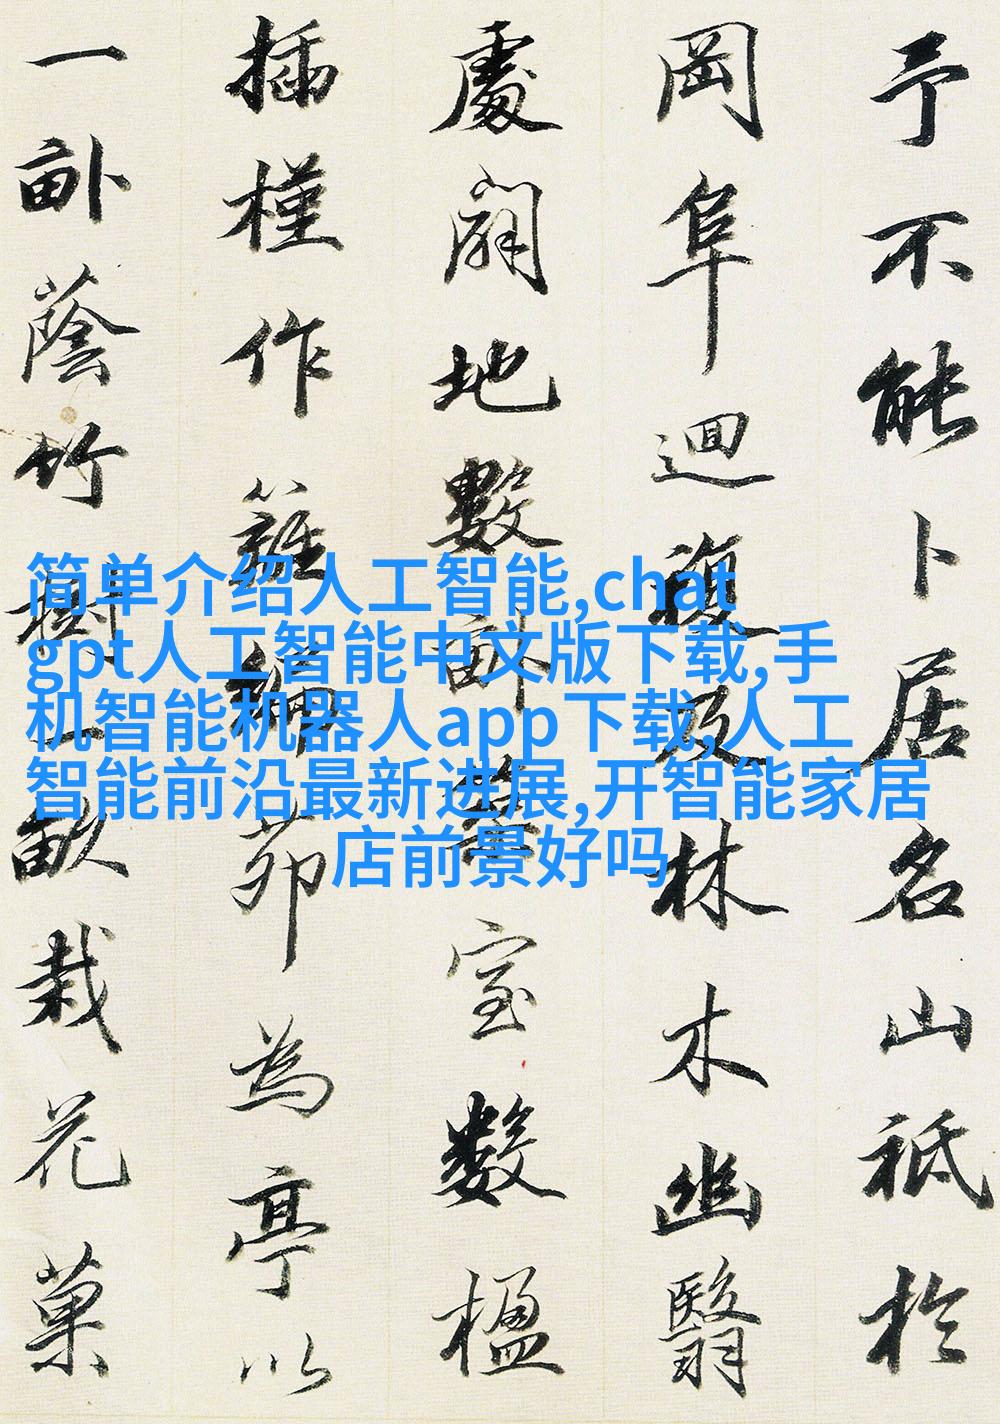 予不能卜居名山祗於
岡阜迴複及林木幽翳
處闢地數畝築室數楹
插槿作籬編茆為亭以
一畝蔭竹樹一畝栽花菓
简单介绍人工智能,chat
gpt人工智能中文版下载,手
机智能机器人app下载,人工
智能前沿最新进展,开智能家居
店前景好吗